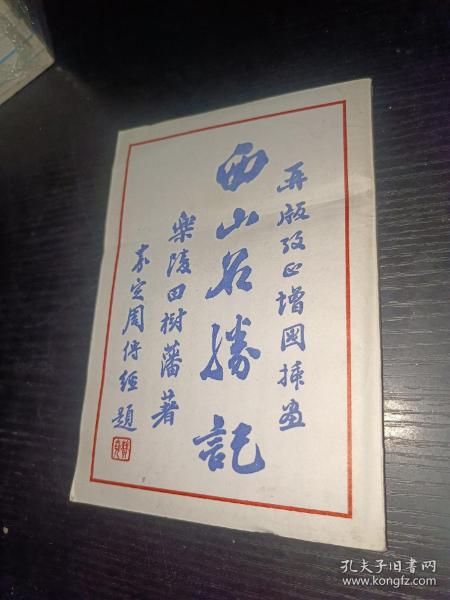 再版改正增図插畫
西山名勝記
樂陵田樹藩著
嘉定周傳經題
孔夫子旧书网
www.kongfz.com